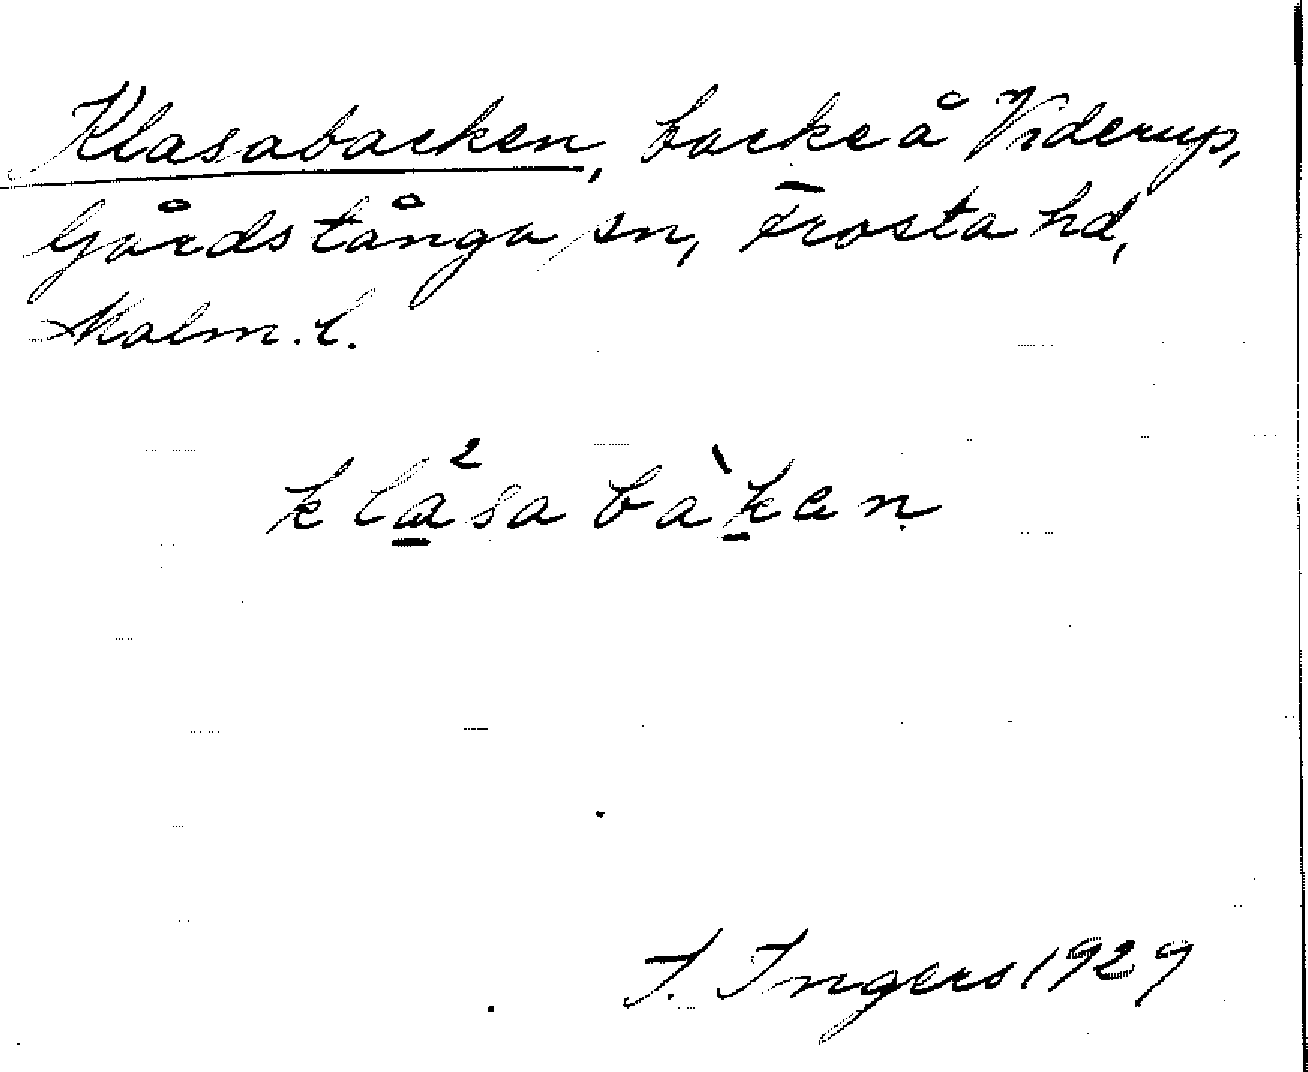 Klasabacken, backe å Viderup,
Gårdstånga sn, Frosta hd,
Malm. l.
kla²sabàkan
I. Ingers 1929